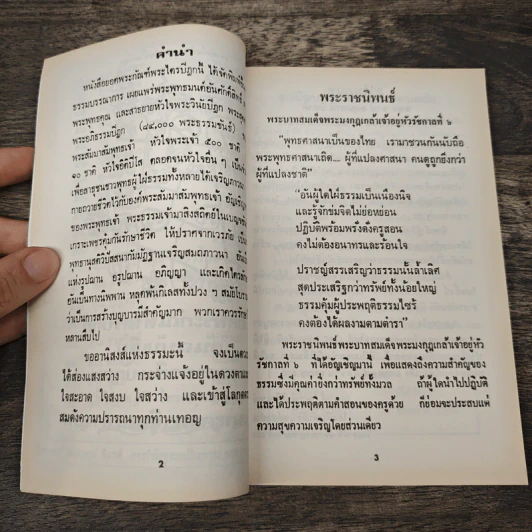 คำนำ
หนังสือยอดพระกัณฑ์พระไตรปิฎกนี้ ได้จัดพิมพ์ขึ้น
ธรรมบรรณาการ เผยแพร่พระพุทธมนต์อันศักดิ์สิทธิ์
พระพุทธคุณ และสาธยายหัวใจพระวินัยปิฎก
พระอภิธรรมปิฎก (๘๔,๐๐๐ พระธรรมขันธ์)
พระสัมมาสัมพุทธเจ้า หัวใจพระเจ้า ๕๐๐ ชาติ
๑๐ ชาติ หัวใจอิติปิโส ตลอดจนหัวใจอื่น ๆ เป็นต้น
เพื่อสาธุชนชาวพุทธผู้ใฝ่ธรรมทั้งหลายได้เจริญภาวนา
กายถวายชีวิตไว้กับองค์พระสัมมาสัมพุทธเจ้า อัญเชิญ
ของพระพุทธเจ้า พระธรรมเจ้ามาสิงสถิตย์ในเบญจขันธ์
เกราะเพชรคุ้มกันรักษาชีวิต ให้ปราศจากเวรภัย
พุทธานุสติวิปัสสนากัมมัฏฐานเจริญสมถภาวนา
แห่งรูปฌาน อรูปฌาน อภิญญา และเกิดไตรลักษณ์
อันเป็นทางนิพพาน หลุดพ้นกิเลสทั้งปวง ๆ สมัยโบราณ
ว่าเป็นการสร้างบุญบารมีสำคัญมาก พวกเราควรรักษา
หลานสืบไป
ขออานิสงส์แห่งธรรมะนี้ จงเป็นดวง
ได้ส่องแสงสว่าง กระจ่างแจ้งอยู่ในดวงตาและ
ใจสะอาด ใจสงบ ใจสว่าง และเข้าสู่โลกุตตระ
สมดังความปรารถนาทุกท่านเทอญ
2
พระราชนิพนธ์
พระบาทสมเด็จพระมงกุฎเกล้าเจ้าอยู่หัวรัชกาลที่ ๖
"พุทธศาสนาเป็นของไทย เรามาชวนกันนับถือ
พระพุทธศาสนาเถิด.... ผู้ที่แปลงศาสนา คนดูถูกยิ่งกว่า
ผู้ที่แปลงชาติ"
"อันผู้ใดใฝ่ธรรมเป็นเนืองนิจ
และรู้จักข่มจิตไม่ย่อหย่อน
ปฏิบัติพร้อมพรั่งดั่งครูสอน
คงไม่ต้องอนาทรและร้อนใจ
ปราชญ์สรรเสริญว่าธรรมนั้นล้ำเลิศ
สุดประเสริฐกว่าทรัพย์ทั้งน้อยใหญ่
ธรรมคุ้มผู้ประพฤติธรรมไซร้
คงต้องได้ผลงามตามตำรา"
พระราชนิพนธ์พระบาทสมเด็จพระมงกุฎเกล้าเจ้าอยู่หัว
รัชกาลที่ ๖ ที่ได้อัญเชิญมานี้ เพื่อแสดงถึงความสำคัญของ
ธรรมซึ่งมีคุณค่ายิ่งกว่าทรัพย์ทั้งมวล ถ้าผู้ใดนำไปปฏิบัติ
และได้ประพฤติตามคำสอนของครูด้วย ก็ย่อมจะประสบแต่
ความสุขความเจริญโดยส่วนเดียว
3